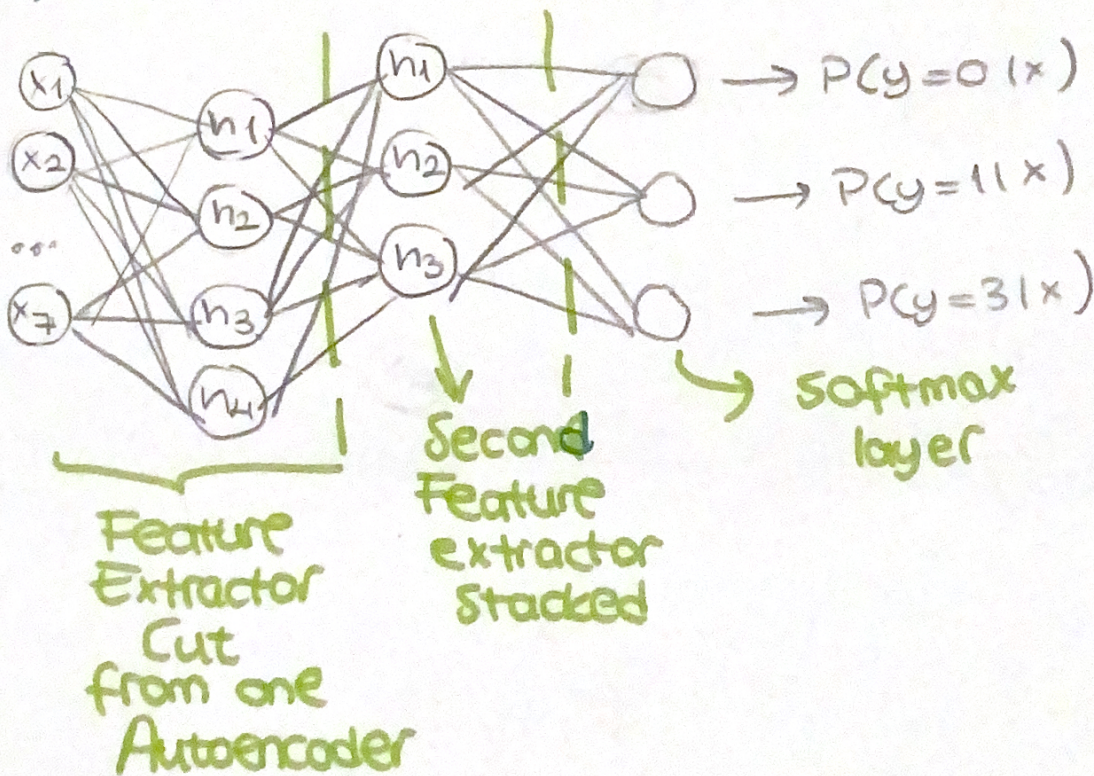 x1
x2
...
x7
h1
h2
h3
h4
h1
h2
h3
→ P(y=0|x)
→ P(y=1|x)
→ P(y=3|x)
softmax
layer
Second
Feature
extractor
Stacked
Feature
Extractor
Cut
from one
Autoencoder